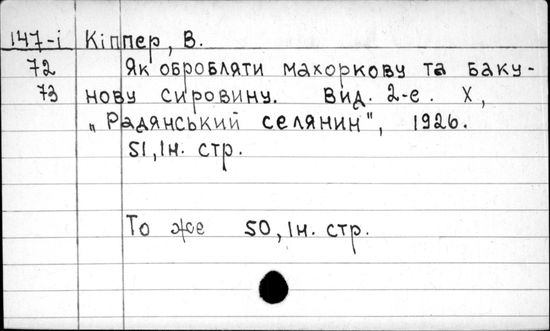 147-і Кіппер, В.
72 Як обробляти махоркову та баку-
73 нову сировину. Вид. 2-е. Х,
„Радянський селянин", 1926.
51, Ін. стр.
То же 50, Ін. стр.